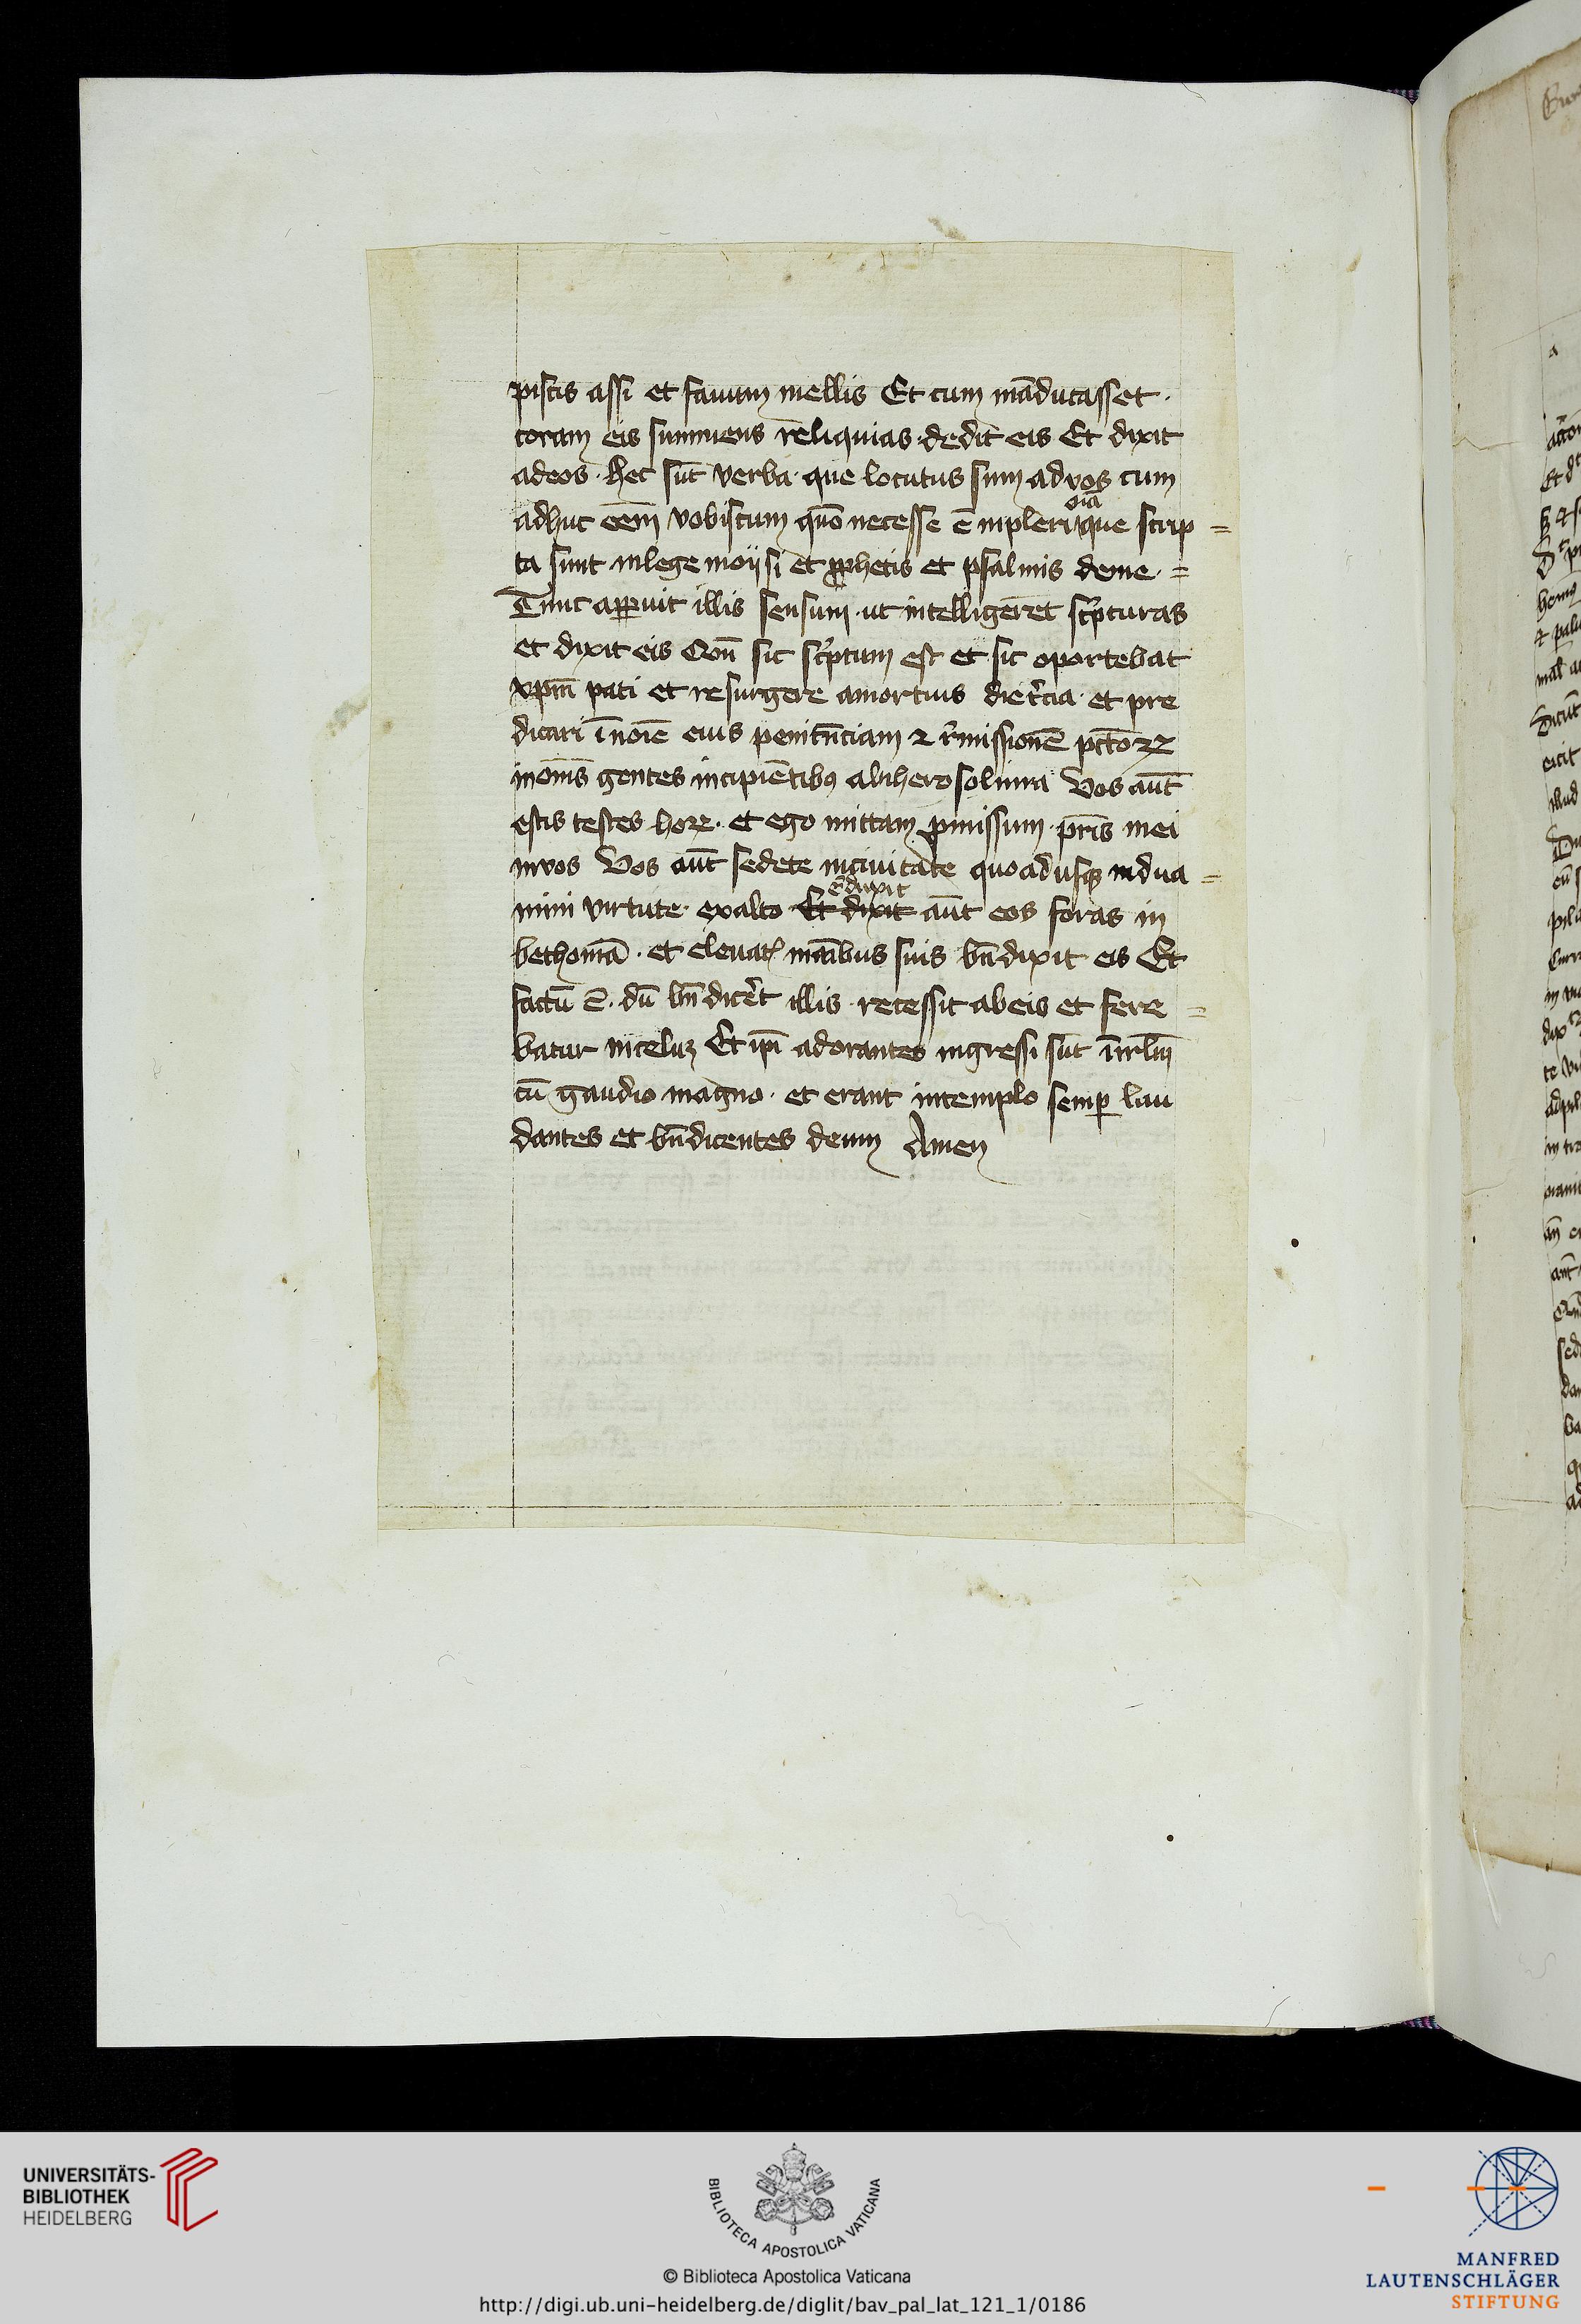 piscis assi et fauum mellis Et cum māducasset ·
coram eis summens reliquias · dedit eis Et dixit
adeos · hec sūt verba · que locutus sum ad vos cum
oīa
adhuc eēm vobiscum quō necesse ē inpleri que scrip =
ta sunt inlege moysi et prophetis et psalmis deme · =
Tunc apperuit illis sensum · ut intelligeret scpturas
et dixit eis Qm̄ sic scptum est et sic oportebat
xpm̄ pati et resurgere amortuis die tcia · et pre
dicari ī noīe eius penitn̄ciam ⁊ rmissionē pctoꝝ
inoms gentes incipiētibꝰ abiherosolima Vos aūt
estis testes hoꝝ · et ego mittam pmissum · pr̄is mei
invos Vos aūt sedete inciuitate quoadusqꝫ indua =
eduxit
mini virtute · exalto Et dixit aūt eos foras in
bethaniā · et eleuatꝭ manibus suis bn̄dixit eis Et
factū ē · dū bn̄diceret illis · recessit abeis et fere =
batur incelūꝫ Et ipī adorantes ingressi sūt īirlm̄
cū gaudio magno · et erant intemplo semꝑ lau
dantes et bn̄dicentes deum Amen
UNIVERSITÄTS-
BIBLIOTHEK
HEIDELBERG
BIBLIOTECA APOSTOLICA VATICANA
© Biblioteca Apostolica Vaticana
http://digi.ub.uni-heidelberg.de/diglit/bav_pal_lat_121_1/0186
MANFRED
LAUTENSCHLÄGER
STIFTUNG